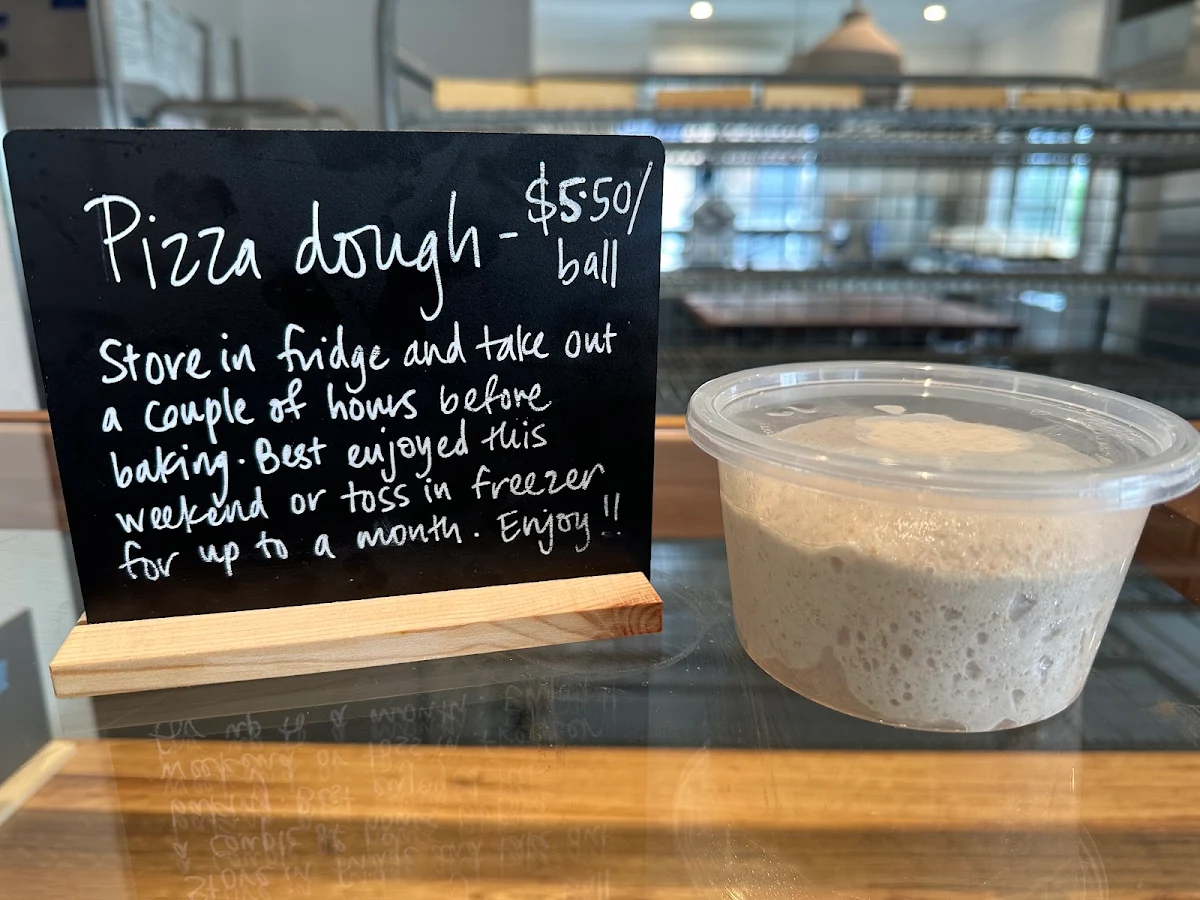 Pizza dough - $5.50/
ball
Store in fridge and take out
a couple of hours before
baking. Best enjoyed this
weekend or toss in freezer
for up to a month. Enjoy!!